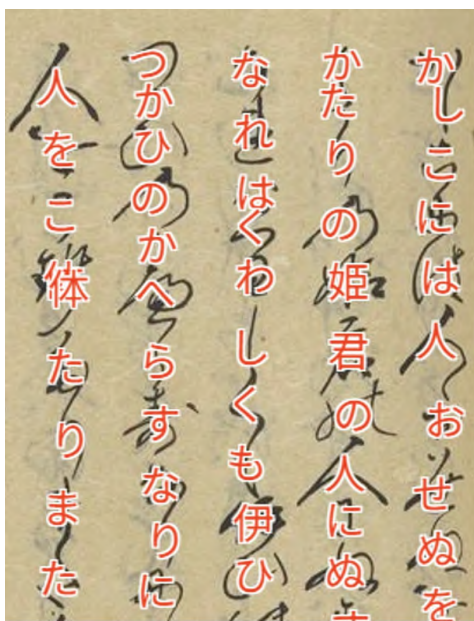 かしこには人おせぬを
かたりの姫君の人にぬす
なれはくわしくも伊ひ
つかひのかへらすなりに
人をこ体たりまた